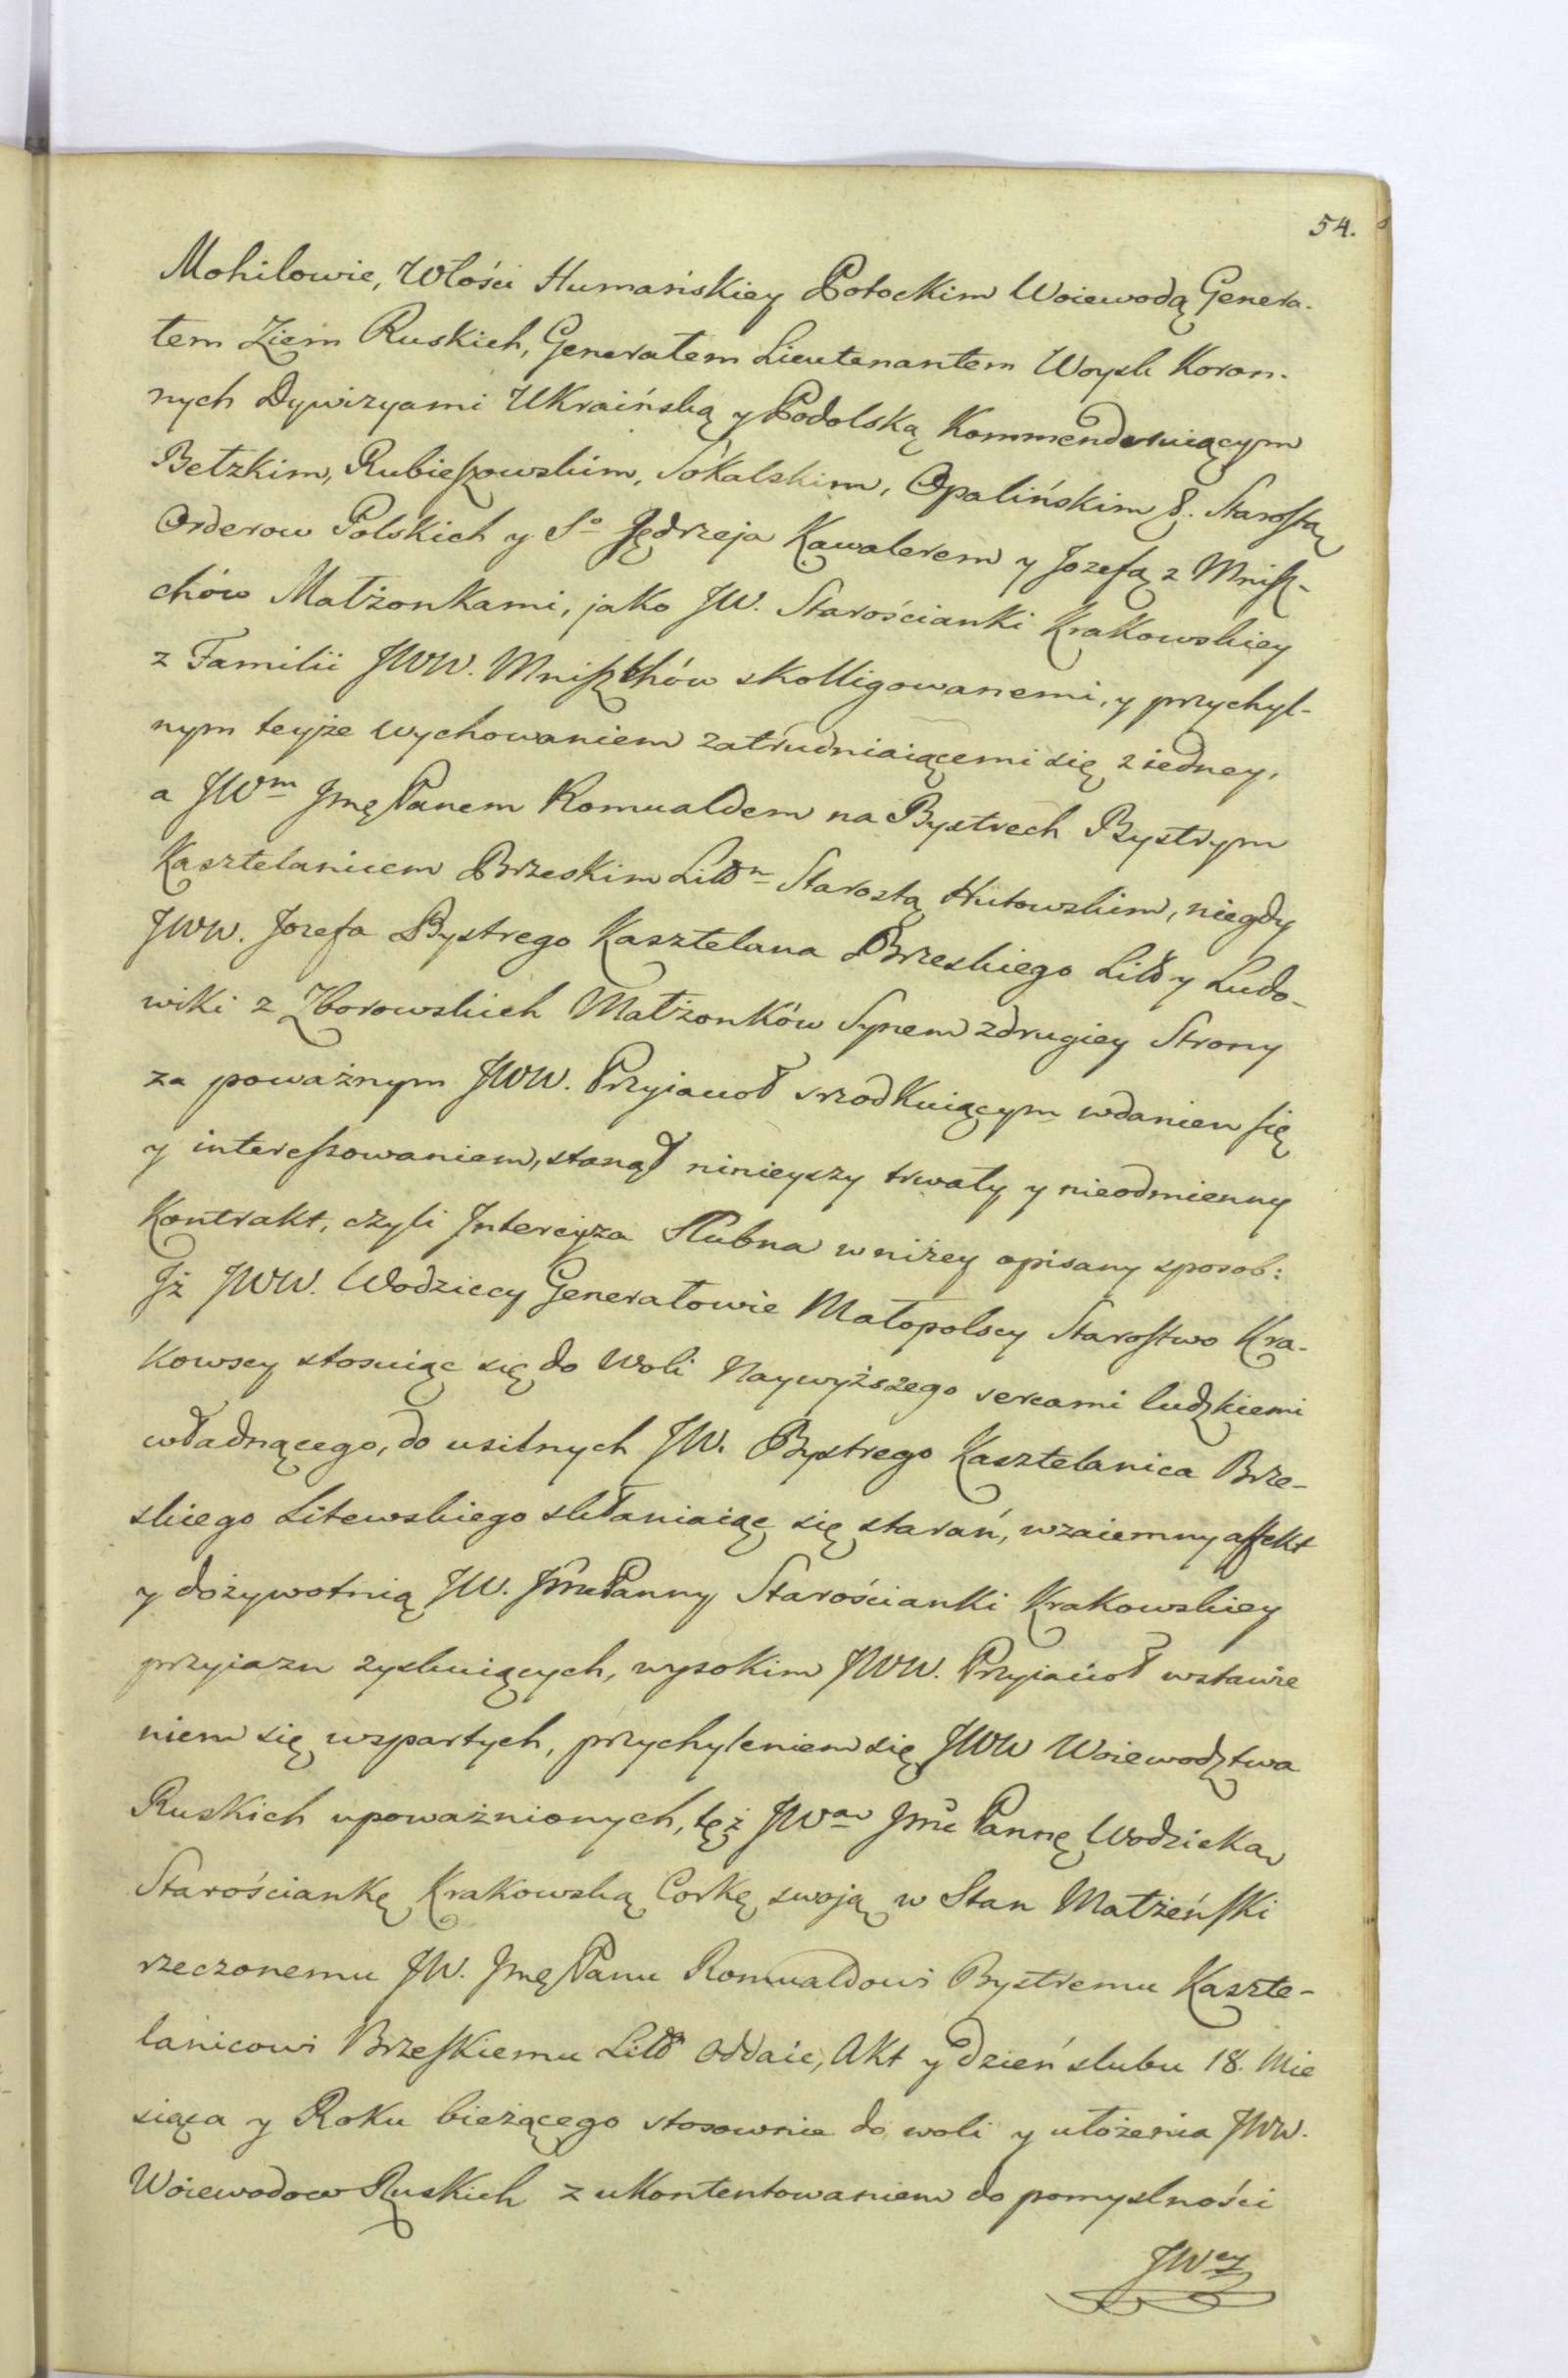 54.
Mohilowie, Włości Humańskiey Potockim Woiewodą Genera-
łem Ziem Ruskich, Generałem Lieutenantem Woysk Koron-
nych Dywizyami Ukraińską y Podolską Kommenderuiącym
Bełzkim, Rubieszowskim, Sokalskim, Opalińskim &. Starostą
Orderow Polskich y So Jędrzeja Kawalerem y Jozefą z Mnisz-
chów Małżonkami, jako JW. Starościanki Krakowskiey
z Familii JWW. Mniszchów skolligowanemi, y przychyl-
nym teyże wychowaniem zatrudniaiącemi się z iedney,
a JWm Jmę Panem Romualdem na Bystrech Bystrym
Kasztelanicem Brzeskim Litt Starostą Hutowskim, niegdy
JWW. Jozefa Bystrego Kasztelana Brzeskiego Litt y Ludo-
wiki z Zborowskich Małżonków Synem z drugiey Strony
za poważnym JWW. Przyiacioł srzodkuiącym wdaniem się
y interessowaniem, stanął ninieyszy trwały y nieodmienny
Kontrakt, czyli Intercyza Slubna w niżey opisany sposob:
Iż JWW. Wodziccy Generałowie Małopolscy Starostwo Kra-
kowscy stosuiąc się do Woli Naywyższego sercami ludzkiemi
władnącego, do usilnych JW. Bystrego Kasztelanica Brze-
skiego Litewskiego skłaniaiąc się starań, wzaiemny affekt
y dożywotnią JW. Jmć Panny Starościanki Krakowskiey
przyiazn zyskuiących, wysokim JWW. Przyiacioł wstawie
niem się wspartych, przychyleniem się JWW Woiewodztwa
Ruskich upoważnionych, tęż JWą Jmć Pannę Wodzicką
Starościankę Krakowską Corkę swoją w Stan Małżeński
rzeczonemu JW. Jmę Panu Romualdowi Bystremu Kaszte-
lanicowi Brzeskiemu Litt oddaic, Akt y dzień slubu 18. Mie
siąca y Roku bieżącego stosownie do woli y ułożenia JWW.
Woiewodow Ruskich z ukontentowaniem do pomyslności
JWey